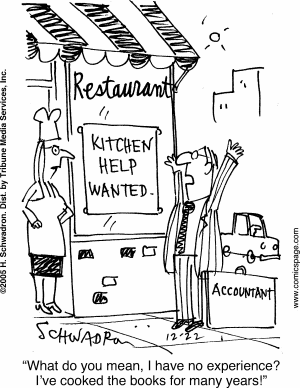 Restaurant
KITCHEN
HELP
WANTED.
ACCOUNTANT
SCHWADRON
12-22
©2005 H. Schwadron. Dist. by Tribune Media Services, Inc.
www.comicspage.com
“What do you mean, I have no experience?
I’ve cooked the books for many years!”